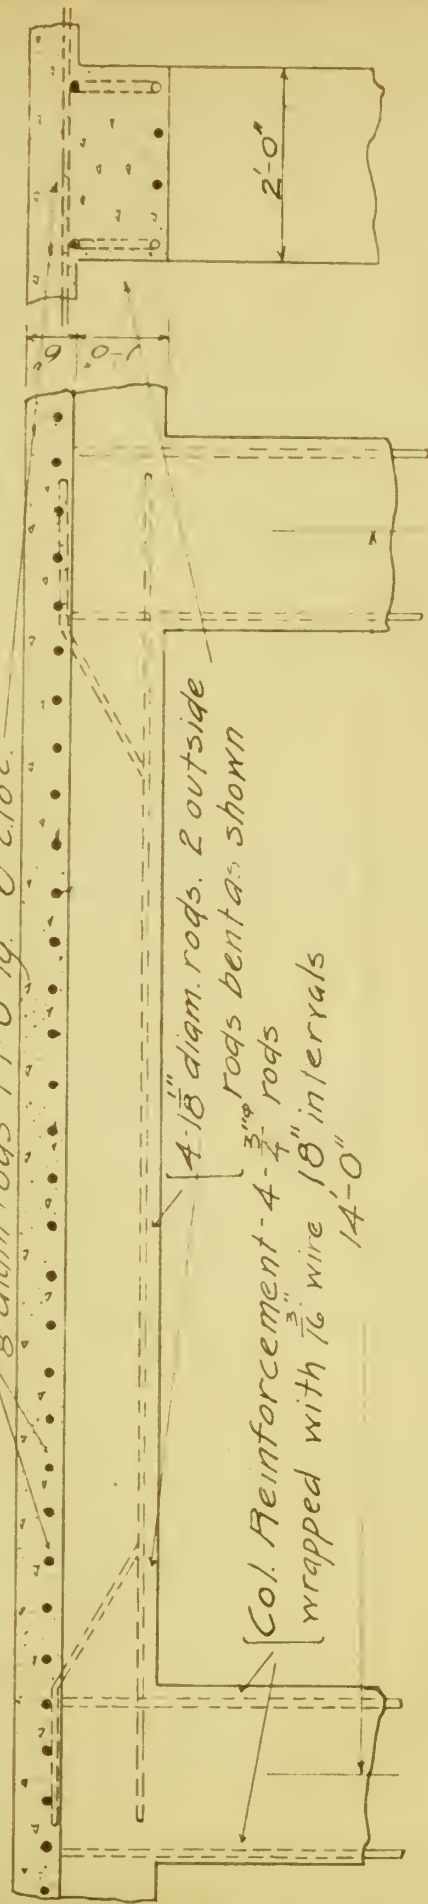 diam rods
4-1 1/8" diam. rods. 2 outside
rods bent as shown
Col. Reinforcement - 4 - 3/4"φ rods
wrapped with 3/16" wire 18" intervals
14'-0"
6"
1'-0"
2'-0"